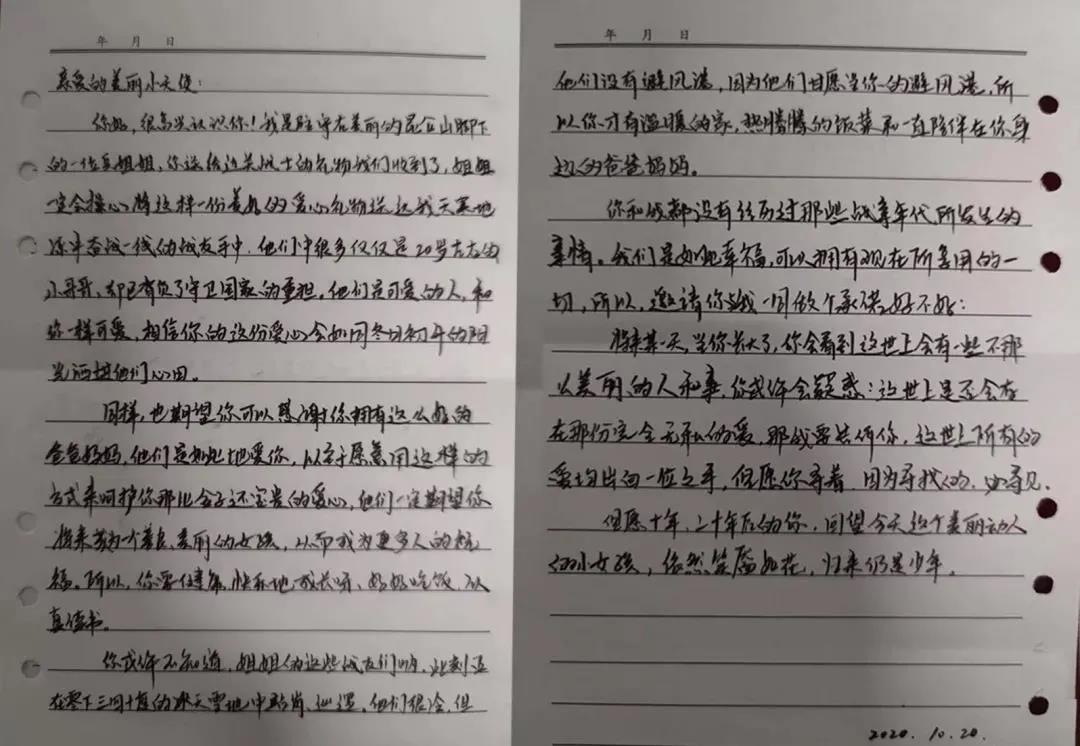 年 月 日
亲爱的美丽小天使：
你好，很高兴认识你！我是驻守在美丽的昆仑山脚下
的一位兵姐姐，你送给边关战士的礼物我们收到了，姐姐
一定会操心将这样一份美好的爱心礼物送达我天寒地
冻斗奋战一线的战友手中，他们中很多仅仅是20岁左右的
小哥哥，却已肩负了守卫国家的重担。他们是可爱的人，和
你一样可爱，相信你的这份爱心会如同冬日初升的阳
光洒进他们心田。
同样，也期望你可以感谢你拥有这么好的
爸爸妈妈，他们是如此地爱你，以至于愿意用这样的
方式来呵护你那比金子还宝贵的爱心，他们一定期望你
将来为一个善良、美丽的女孩，从而成为更多人的祝
福。所以，你要健康、快乐地成长呀，好好吃饭，认
真读书。
你或许不知道，姐姐的这些战友们呐，此刻正
在零下三四十度的冰天雪地中站岗、巡逻。他们很冷，但
年 月 日
他们没有避风港，因为他们甘愿当你的避风港，所
以你才有温暖的家，热腾腾的饭菜和一直陪伴在你身
边的爸爸妈妈。
你和我都没有经历过那些战争年代所发生的
事情。我们是如此幸福，可以拥有现在所享用的一
切，所以，邀请你与我一同做个承诺好不好：
将来某一天，当你长大了，你会看到这世上会有一些不那
么美丽的人和事，你或许会疑惑：这世上是否会存
在那份完全无私的爱，那我要告诉你，这世上所有的
爱均出自一位之手，但愿你寻着，因为寻找的，必寻见。
但愿十年、二十年后的你，回望今天这个美丽动人
的小女孩，依然笑靥如花，归来仍是少年。
2020.10.20.